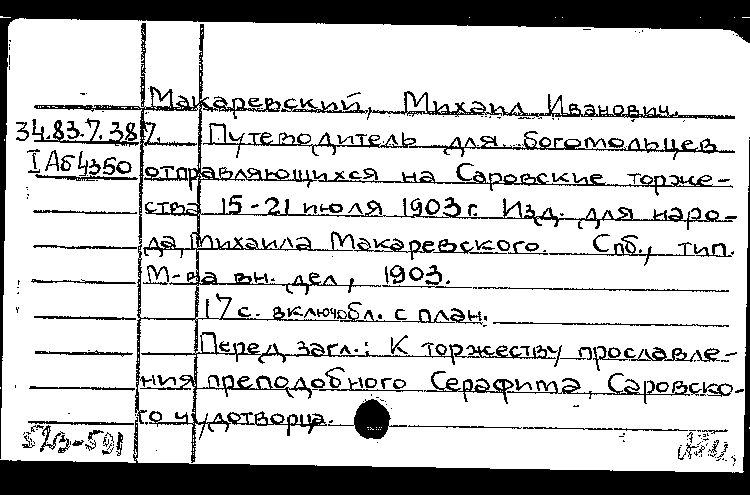 Макаревский, Михаил Иванович.
34.83.7.387. Путеводитель для богомольцев
I Аб4350 отправляющихся на Саровские торже-
ства 15-21 июля 1903 г. Изд. для наро-
да, Михаила Макаревского. Спб., тип.
М-ва вн. дел, 1903.
17 с. включ обл. с план.
Перед загл.: К торжеству прославле-
ния преподобного Серафима, Саровско-
го чудотворца.